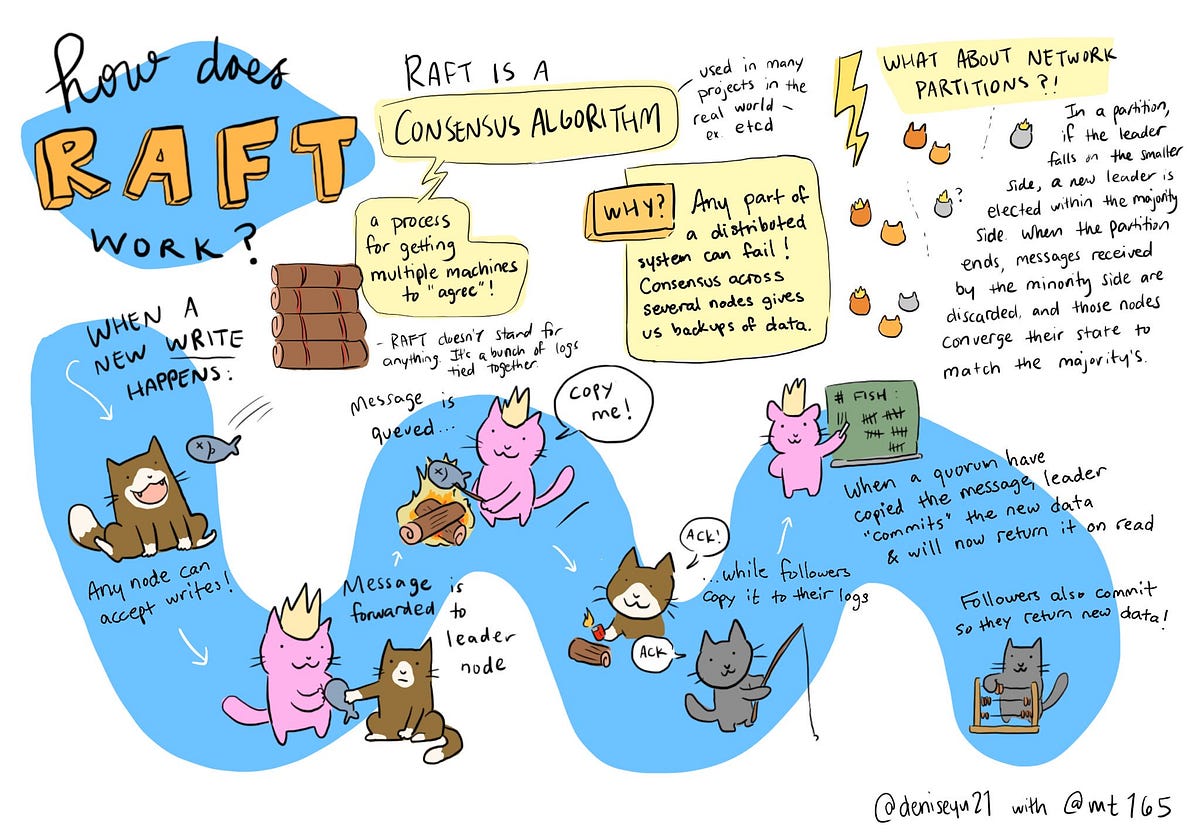 how does
RAFT
WORK?
RAFT IS A
CONSENSUS ALGORITHM
used in many
projects in the
real world –
ex. etcd
a process
for getting
multiple machines
to "agree"!
- RAFT doesn't stand for
anything. It's a bunch of logs
tied together.
WHY?
Any part of
a distributed
system can fail!
Consensus across
several nodes gives
us backups of data.
WHAT ABOUT NETWORK
PARTITIONS?!
?
In a partition,
if the leader
falls on the smaller
side, a new leader is
elected within the majority
side. When the partition
ends, messages received
by the minority side are
discarded, and those nodes
converge their state to
match the majority's.
WHEN A
NEW WRITE
HAPPENS:
Any node can
accept writes!
Message is
forwarded to
leader
node
Message is
queued...
COPY
me!
ACK!
ACK
...while followers
copy it to their logs
# FISH:
When a quorum have
copied the message, leader
"commits" the new data
& will now return it on read
Followers also commit
so they return new data!
@deniseyu21 with @mt165